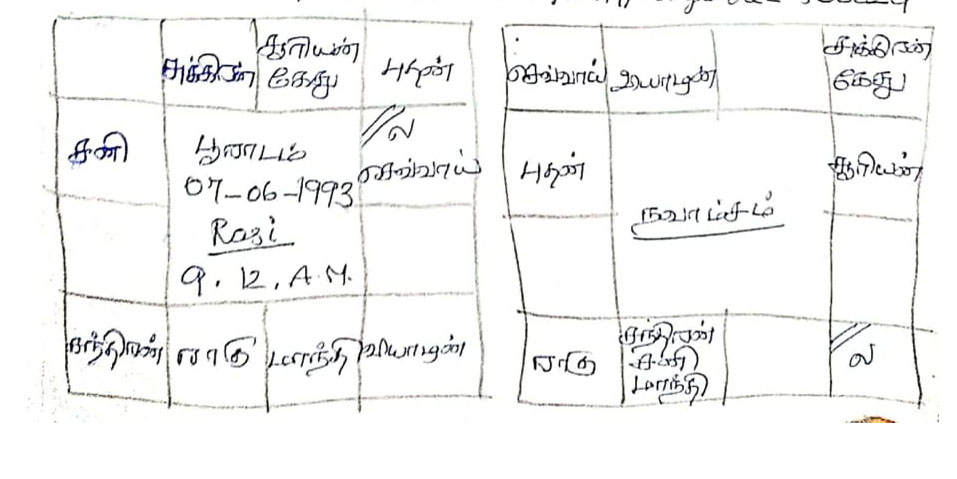 சுக்கிரன்
சூரியன்
கேது
புதன்
சனி
பூராடம்
07-06-1993
Rasi
9.12.A.M.
ல
செவ்வாய்
சந்திரன்
ராகு
மாந்தி
வியாழன்
செவ்வாய்
வியாழன்
சுக்கிரன்
கேது
புதன்
நவாம்சம்
சூரியன்
ராகு
சந்திரன்
சனி
மாந்தி
ல